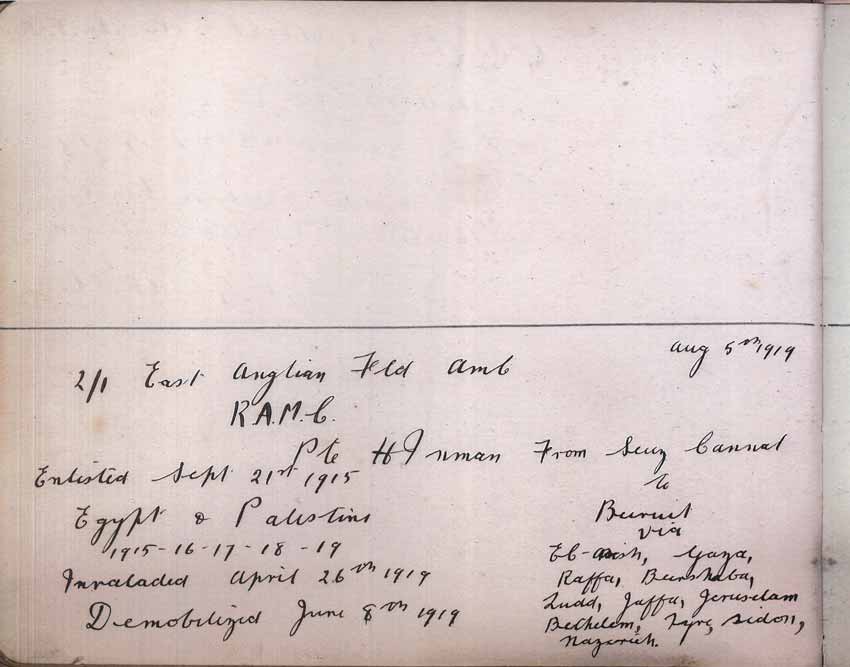 Aug 5th 1919
2/1 East Anglian Fld Amb
R.A.M.C.
Pte H Inman From Suez Cannal
Enlisted Sept 21st 1915
to
Egypt & Palistine
Beiruit
via
1915-16-17-18-19
El-Arish, Gaza,
Invaladed April 26th 1919
Raffa, Beershaba,
Ludd, Jaffa, Jeruselam
Demobilized June 8th 1919
Bethelem, Tyre, Sidon,
Nazerieh.